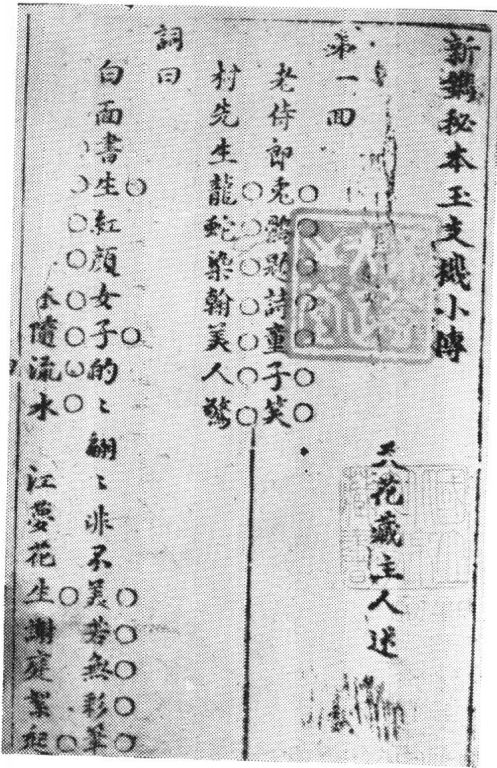 新鐫秘本玉支璣小傳
天花藏主人述
第一回
老侍郎兎題詩童子笑
村先生龍蛇染翰美人驚
詞曰
白面書生紅顔女子的〻翩〻非不美若無彩筆
隨流水 江夢花生謝庭絮起